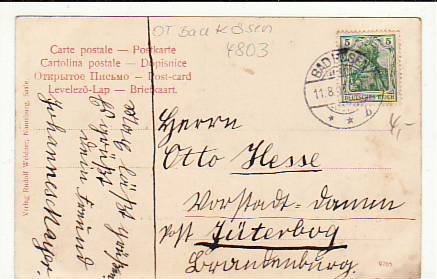 OT Bad Kösen
4803
Carte postale — Postkarte
Cartolina postale — Dopisnice
Открытое Письмо — Post-card
Levelező-Lap — Briefkaart.
5 5
DEUTSCHES REICH
BAD KÖSEN
11.8.
* * b
4,-
Herrn
Otto Hesse
Vorstadt-Damm
Jüterbog
Brandenburg.
grüßt
Dein Freund
Johannes Mayer.
Verlag Rudolf Weidner, Naumburg, Saale.